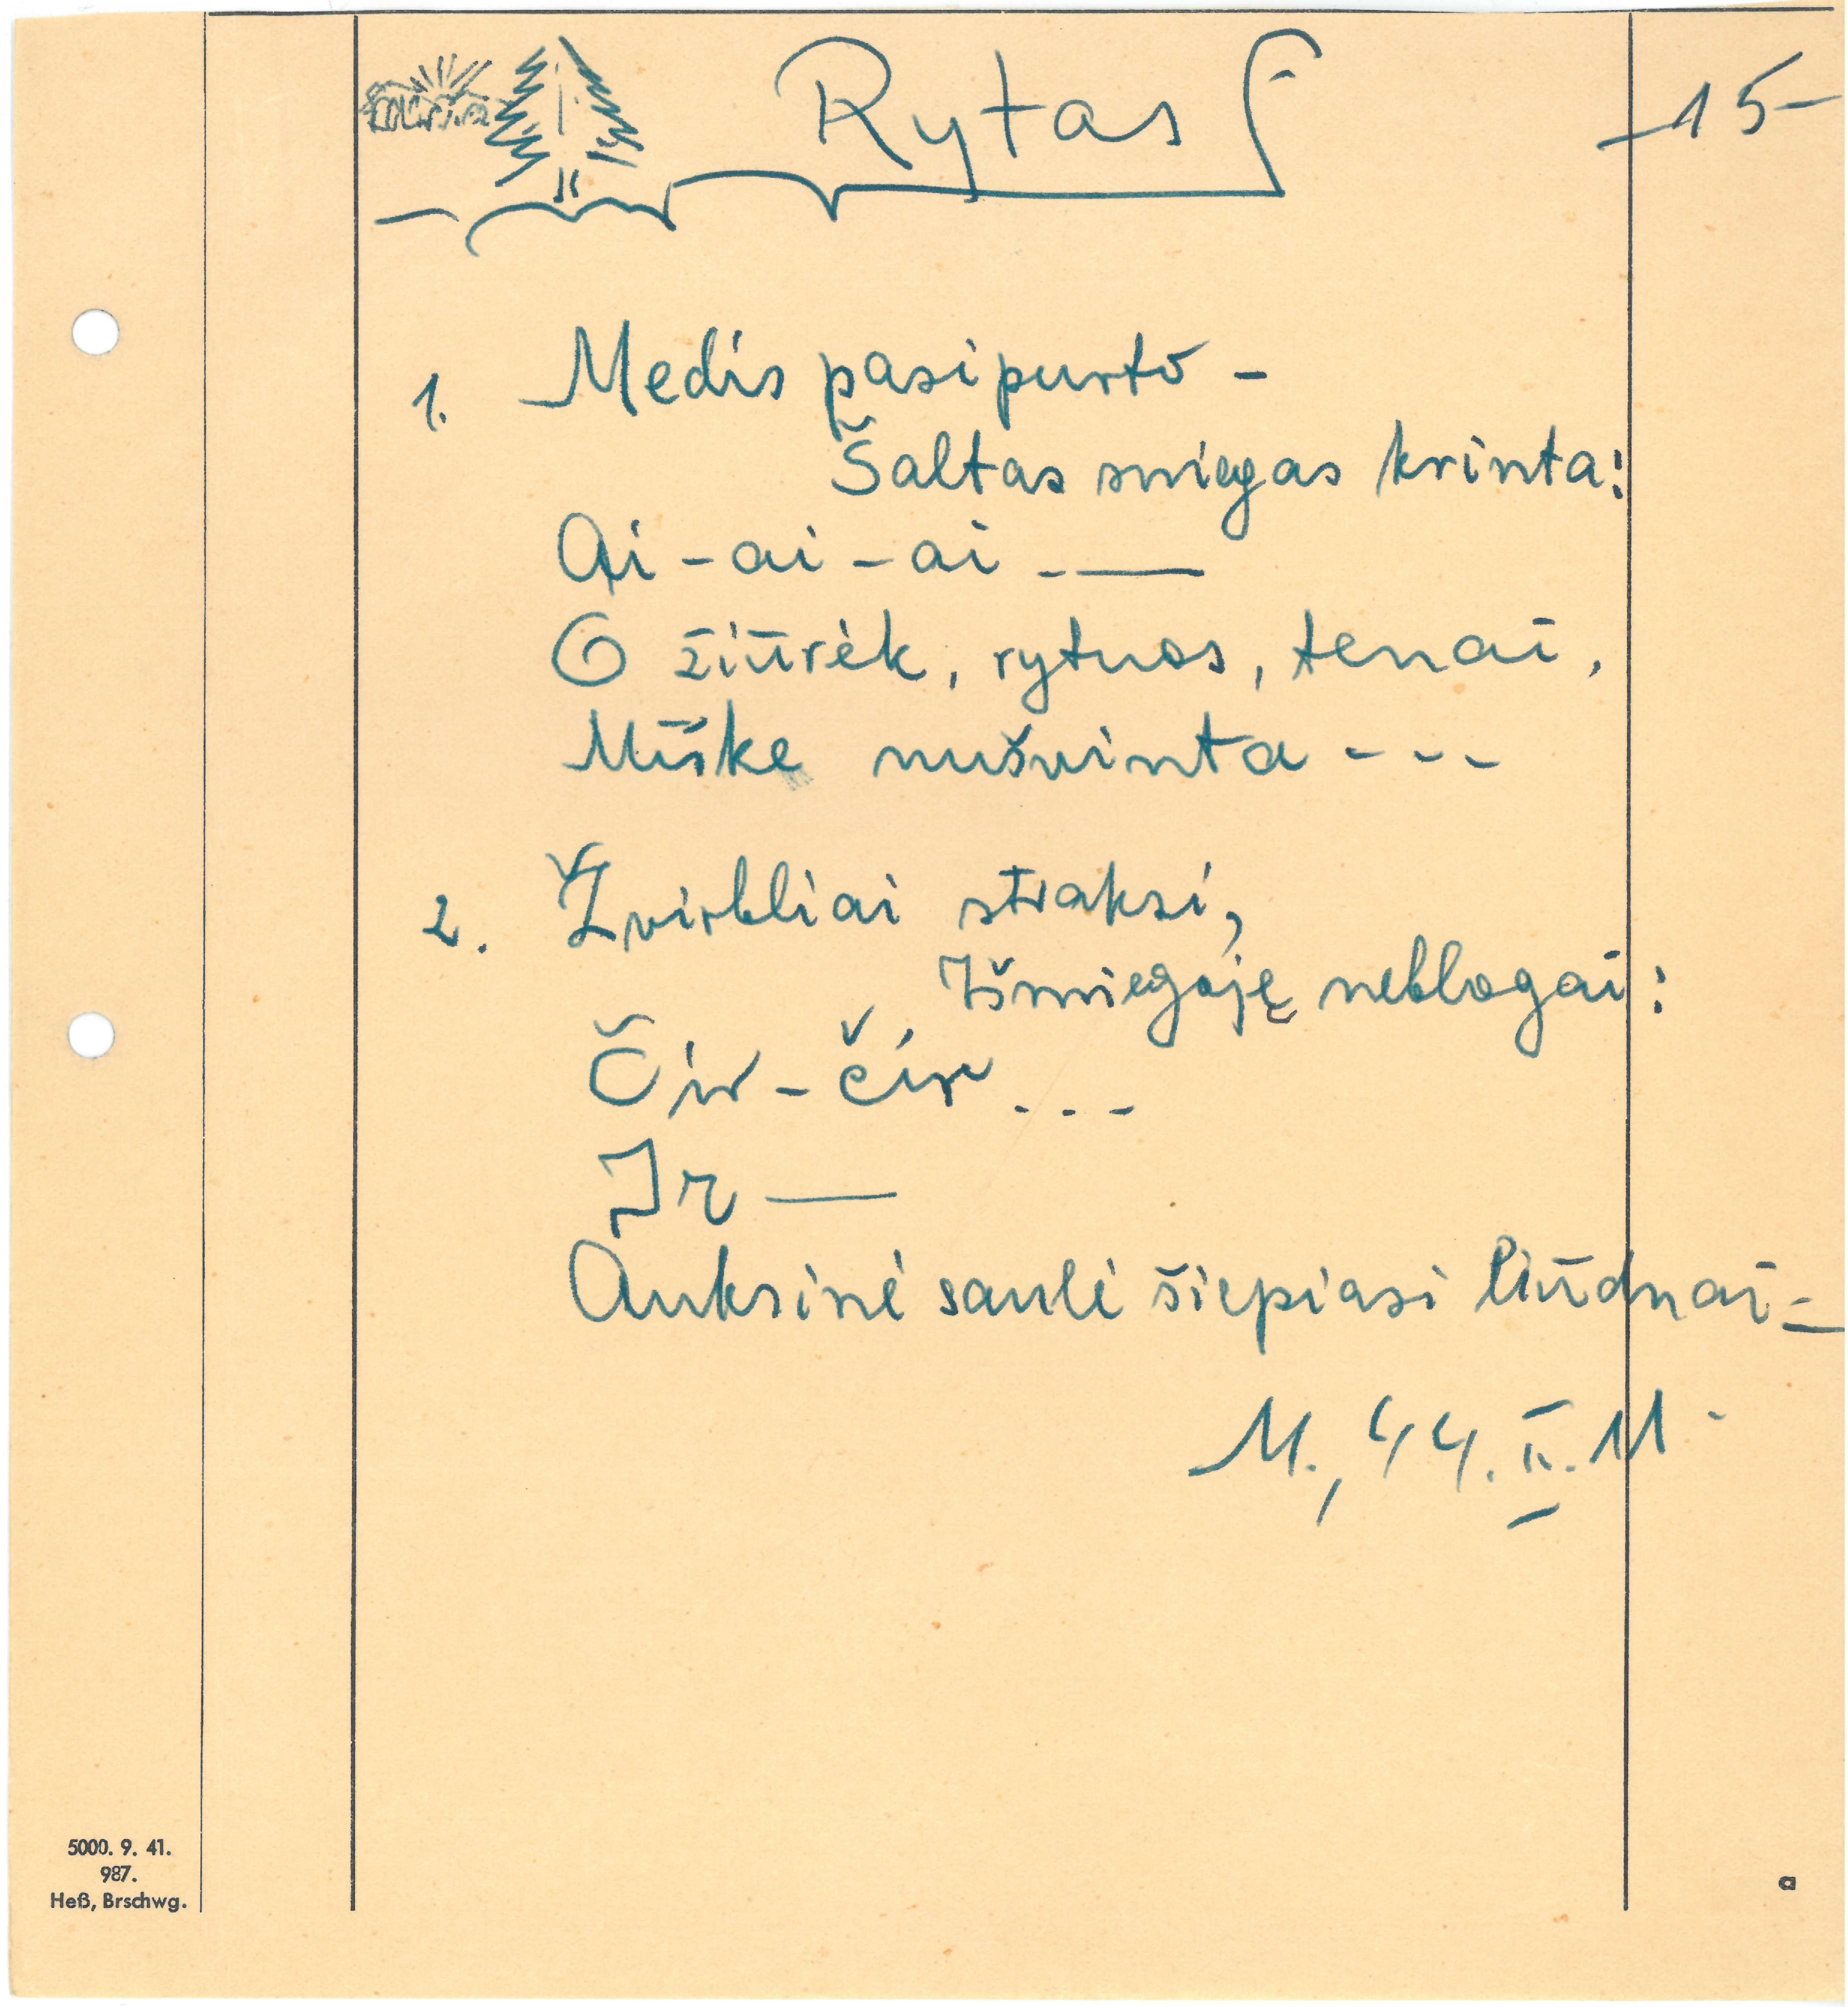 Rytas
-15-
1. Medis pasipurto -
Šaltas sniegas krinta:
Ai - ai - ai - —
O žiūrėk, rytuos, tenai,
Miške nušvinta - - -
2. Žvirbliai straksi,
Išmiegoję neblogai:
Čir - čir . . -
Ir —
Auksinė saulė šiepiasi liūdnai - —
M., 44. II. 11.
5000. 9. 41.
987.
Heß, Brschwg.
a